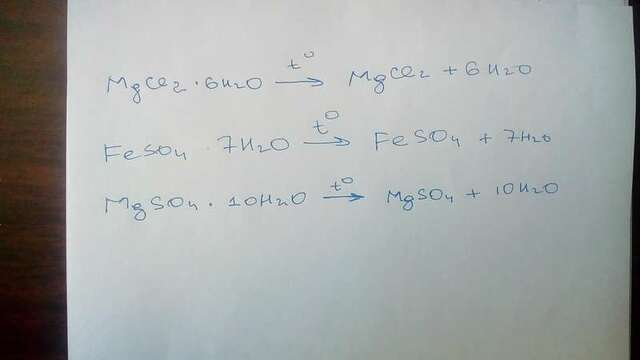 MgCl₂ · 6H₂O —t°→ MgCl₂ + 6H₂O
FeSO₄ · 7H₂O —t°→ FeSO₄ + 7H₂O
MgSO₄ · 10H₂O —t°→ MgSO₄ + 10H₂O